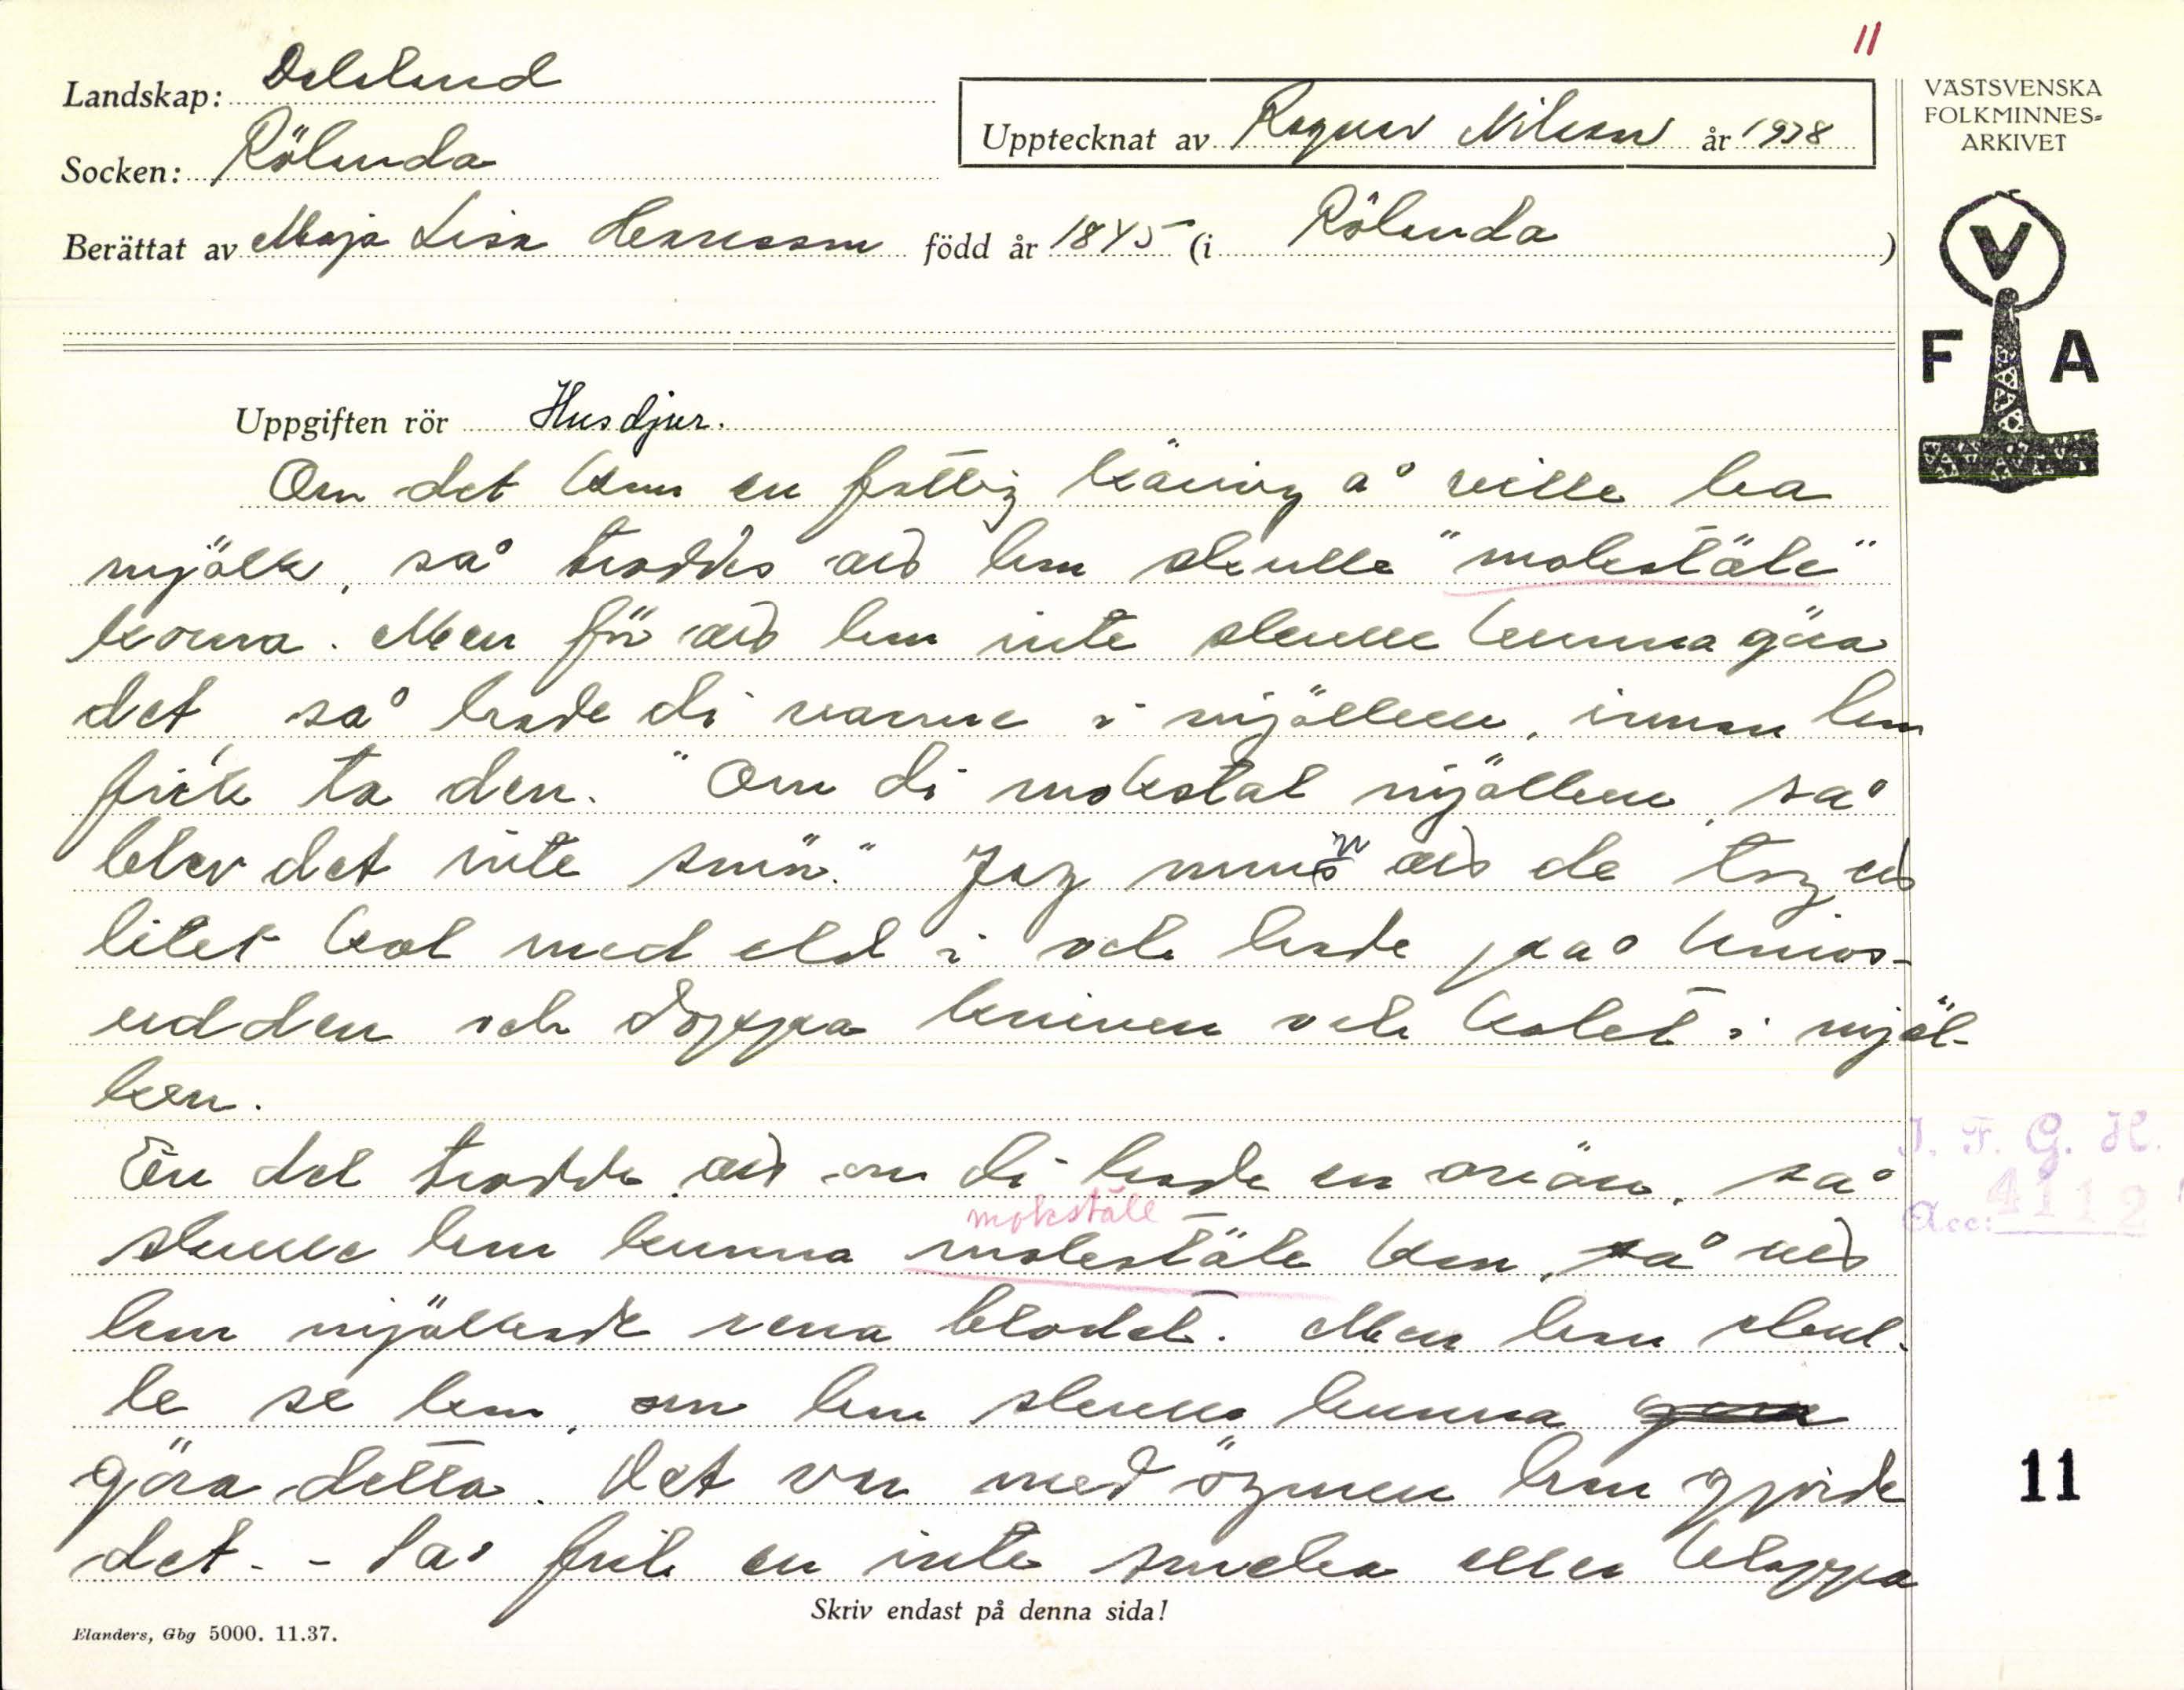 11
Landskap: Dalsland
Upptecknat av Ragnar Nilsson år 1938
VÄSTSVENSKA
FOLKMINNES=
ARKIVET
Socken: Rölanda
Berättat av Maja Lisa Henriksson född år 1845 (i Rölanda)
V
F A
Uppgiften rör Husdjur.
Om det kom en fattig käring å ville ha
mjölk, så troddes att hon skulle "molestäle"
korna. Men för att hon inte skulle kunna göra
det så hade di varme i mjölken, innan hon
fick ta den. "Om di mokstal mjölken, så
blev det inte smör." Jag minns att de tog ett
litet kol med eld i och hade på knivs-
udden och doppa kniven och kolet i mjöl-
ken.
En del trodde att om di hade en orään, så
mokstäle
skulle hon kunna molestäle kon, så att
hon mjölkade rena blodet. Men hon skul-
le se kon, om hon skulle kunna
göra detta. Det var med ögonen hon gjorde
det. - Så fick en inte smeka eller klappa
J. F. G. H.
Acc: 4112
11
Skriv endast på denna sida!
Elanders, Gbg 5000. 11.37.